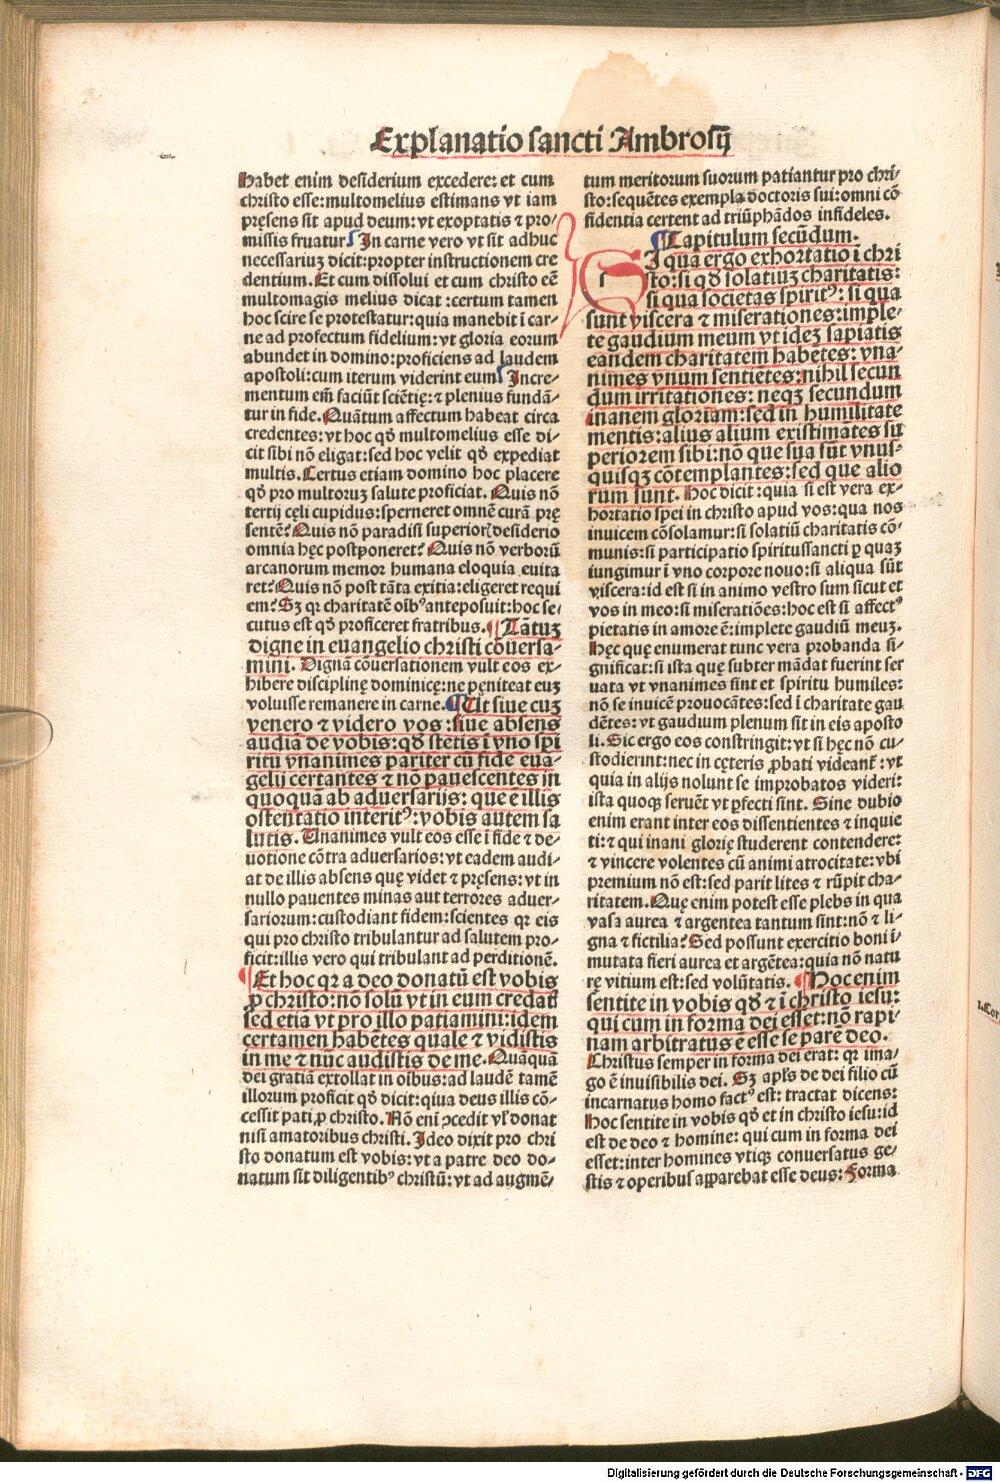 Explanatio sancti Ambrosij
Habet enim desiderium excedere: et cum
christo esse: multomelius estimans vt iam
pręsens sit apud deum: vt exoptatis ⁊ pro⸗
missis fruatur. In carne vero vt sit adhuc
necessariuʒ dicit: propter instructionem cre
dentium. Et cum dissolui et cum christo eē
multomagis melius dicat: certum tamen
hoc scire se protestatur: quia manebit ī car⸗
ne ad profectum fidelium: vt gloria eorum
abundet in domino: proficiens ad laudem
apostoli: cum iterum viderint eum. Incre⸗
mentum em̄ faciūt sciētię: ⁊ plenius fundā⸗
tur in fide. Quātum affectum habeat circa
credentes: vt hoc qđ multomelius esse di⸗
cit sibi nō eligat: sed hoc velit qđ expediat
multis. Certus etiam domino hoc placere
qđ pro multoruʒ salute proficiat. Quis nō
tertij cęli cupidus: sperneret omnē curā prę
sentē? Quis nō paradisi superiorꝭ desiderio
omnia hęc postponeret? Quis nō verborū
arcanorum memor humana eloquia euita
ret? Quis nō post tāta exitia: eligeret requi
em? Sʒ qꝛ charitatē oībꝰ anteposuit: hoc se⸗
cutus est qđ proficeret fratribus. ¶ Tātuʒ
digne in euangelio christi cōuersa⸗
mini. Dignā cōuersationem vult eos ex⸗
hibere disciplinę dominicę: ne pęniteat euʒ
voluisse remanere in carne. ¶ Ut siue cuʒ
venero ⁊ videro vos: siue absens
audiā de vobis: qđ stetis ī vno spi
ritu vnanimes pariter cū fide euā⸗
gelij certantes ⁊ nō pauescentes in
quoquā ab aduersarijs: que ē illis
ostentatio interitꝰ: vobis autem sa
lutis. Unanimes vult eos esse ī fide ⁊ de⸗
uotione cōtra aduersarios: vt eadem audi⸗
at de illis absens quę videt ⁊ pręsens: vt in
nullo pauentes minas aut terrores aduer⸗
sariorum: custodiant fidem: scientes qꝛ eis
qui pro christo tribulantur ad salutem pro⸗
ficit: illis vero qui tribulant ad perditionē.
¶ Et hoc qꝛ a deo donatū est vobis
ꝓ christo: nō solū vt in eum credatꝭ
sed etiā vt pro illo patiamini: idem
certamen habētes quale ⁊ vidistis
in me ⁊ nūc audistis de me. Quāquā
dei gratiā extollat in oībus: ad laudē tamē
illorum proficit qđ dicit: quia deus illis cō⸗
cessit pati ꝓ christo. Nō enī ꝯcedit vł donat
nisi amatoribus christi. Ideo dixit pro chri
sto donatum est vobis: vt a patre deo do⸗
natum sit diligentibꝰ christū: vt ad augmē⸗
tum meritorum suorum patiantur pro chri⸗
sto: sequētes exempla doctoris sui: omni cō
fidentia certent ad triūphādos infideles.
¶ Capitulum secūdum.
SI qua ergo exhortatio ī chri
sto: si qđ solatiuʒ charitatis:
si qua societas spiritꝰ: si qua
sunt viscera ⁊ miserationes: imple⸗
te gaudium meum vt ideʒ sapiatis
eandem charitatem habētes: vna⸗
nimes vnum sentiētes: nihil secun
dum irritationes: neqʒ secundum
inanem gloriam: sed in humilitate
mentis: alius alium existimātes su
periorem sibi: nō que sua sūt vnus⸗
quisqʒ cōtemplantes: sed que alio
rum sunt. Hoc dicit: quia si est vera ex⸗
hortatio spei in christo apud vos: qua nos
inuicem cōsolamur: si solatiū charitatis cō⸗
munis: si participatio spiritussancti ꝑ quaʒ
iungimur ī vno corpore nouo: si aliqua sūt
viscera: id est si in animo vestro sum sicut et
vos in meo: si miseratiōes: hoc est si affectꝰ
pietatis in amore ē: implete gaudiū meuʒ.
Hęc quę enumerat tunc vera probanda si⸗
gnificat: si ista quę subter mādat fuerint ser
uata vt vnanimes sint et spiritu humiles:
nō se inuicē prouocātes: sed ī charitate gau
dētes: vt gaudium plenum sit in eis aposto
li. Sic ergo eos constringit: vt si hęc nō cu⸗
stodierint: nec in cęteris ꝓbati videant᷑: vt
quia in alijs nolunt se improbatos videri:
ista quoqʒ seruēt vt ꝑfecti sint. Sine dubio
enim erant inter eos dissentientes ⁊ inquie
ti: ⁊ qui inani glorię studerent contendere:
⁊ vincere volentes cū animi atrocitate: vbi
premium nō est: sed parit lites ⁊ rūpit cha⸗
ritatem. Quę enim potest esse plebs in qua
vasa aurea ⁊ argentea tantum sint: nō ⁊ li⸗
gna ⁊ fictilia? Sed possunt exercitio boni ī⸗
mutata fieri aurea et argētea: quia nō natu
rę vitium est: sed volūtatis. ¶ Hoc enim
sentite in vobis qđ ⁊ ī christo iesu:
qui cum in forma dei esset: nō rapi⸗
nam arbitratus ē esse se parē deo.
Christus semper in forma dei erat: qꝛ ima⸗
go ē inuisibilis dei. Sʒ apl̄s de dei filio cū
incarnatus homo factꝰ est: tractat dicens:
Hoc sentite in vobis qđ et in christo iesu: id
est de deo ⁊ homine: qui cum in forma dei
esset: inter homines vtiqʒ conuersatus ge⸗
stis ⁊ operibus apparebat esse deus: Forma
Digitalisierung gefördert durch die Deutsche Forschungsgemeinschaft - DFG